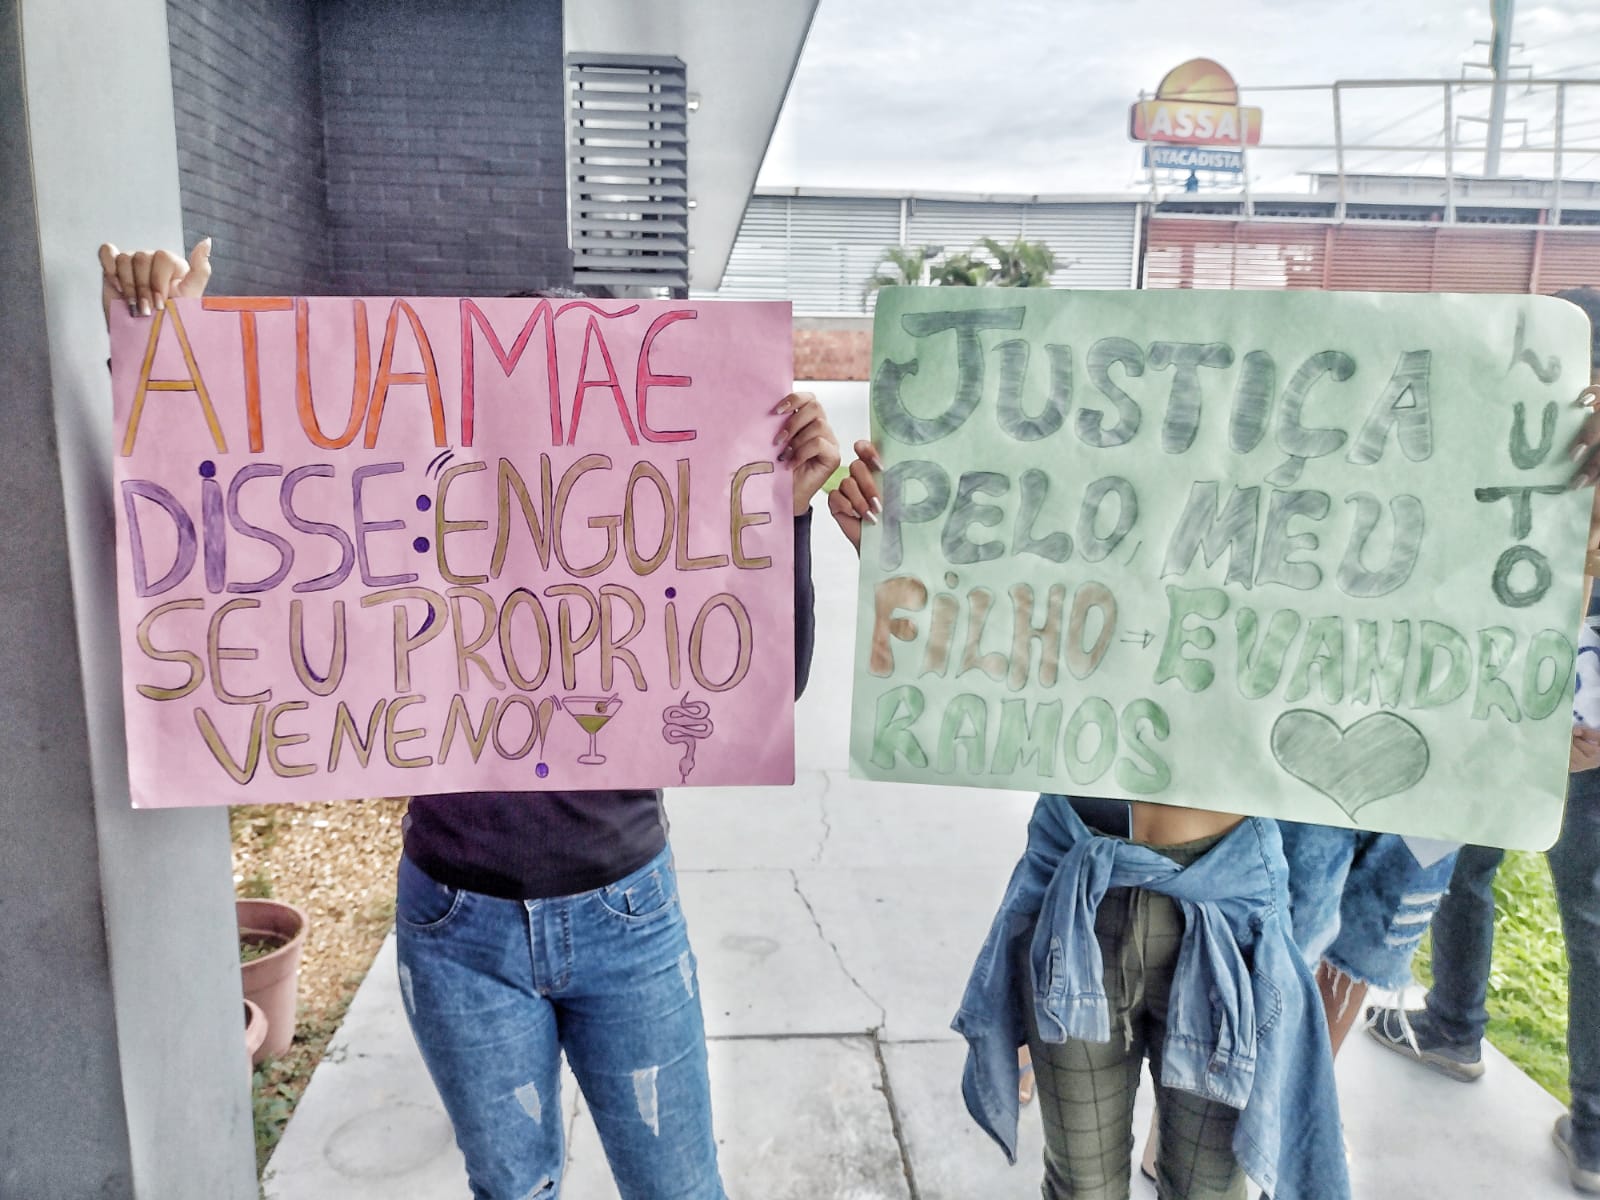 ATUA MÃE
DISSE: "ENGOLE
SEU PROPRIO
VENENO!"
JUSTIÇA
PELO, MÉU
FILHO → EVANDRO
RAMOS
LUTO
ASSAÍ
ATACADISTA